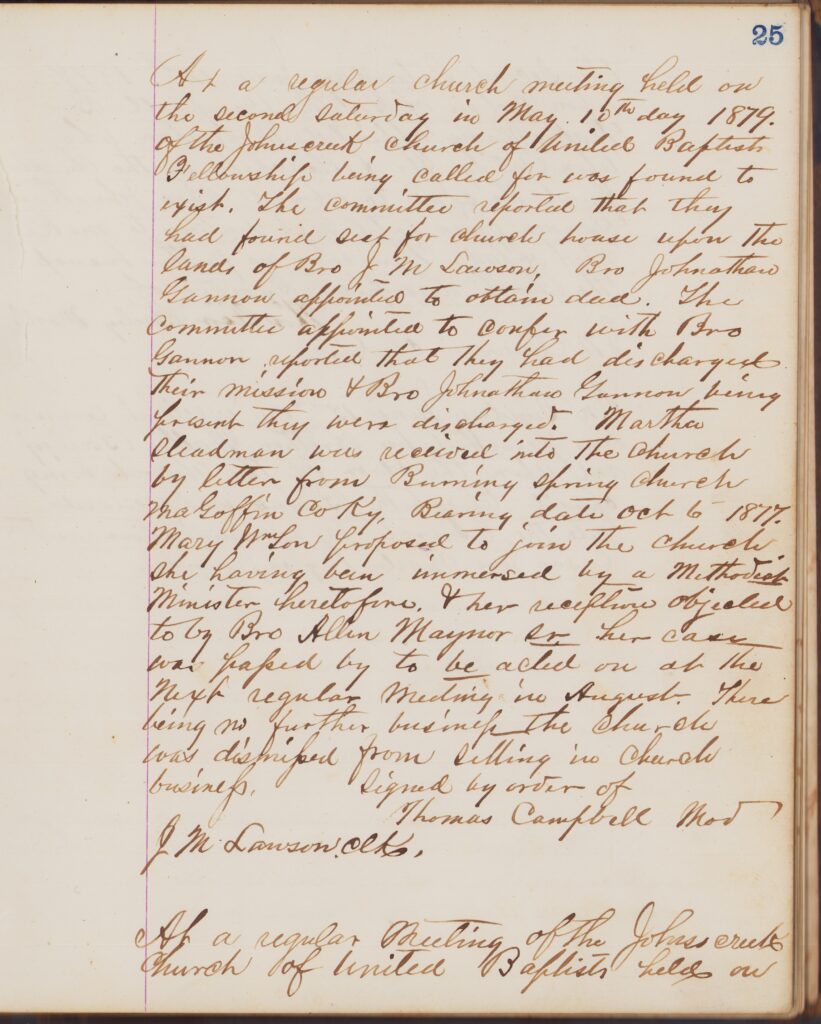 25
At a regular church meeting held on
the second saturday in May 10th day 1879.
of the Johnscreek church of United Baptists
Fellowship being called for was found to
exist. The committee reported that they
had found seet for church house upon the
lands of Bro J M Lawson, Bro Johnathan
Gannon appointed to obtain deed. The
committee appointed to confer with Bro
Gannon reported that they had discharged
their mission & Bro Johnathan Gannon being
present they were discharged. Martha
Steadman was received into the church
by letter from Burning spring church
MaGoffin Co Ky, Bearing date Oct 6 1877.
Mary WmSon proposed to join the church
she having been immersed by a Methodist
Minister heretofore, & her reception objected
to by Bro Allen Maynor Sr. her case
was passed by to be acted on at the
Next regular Meeting in August. There
being no further business the church
was dismissed from sitting in church
business. signed by order of
Thomas Campbell Mod
J M Lawson. Clk.
At a regular Meeting of the Johnscreek
Church of United Baptists held on